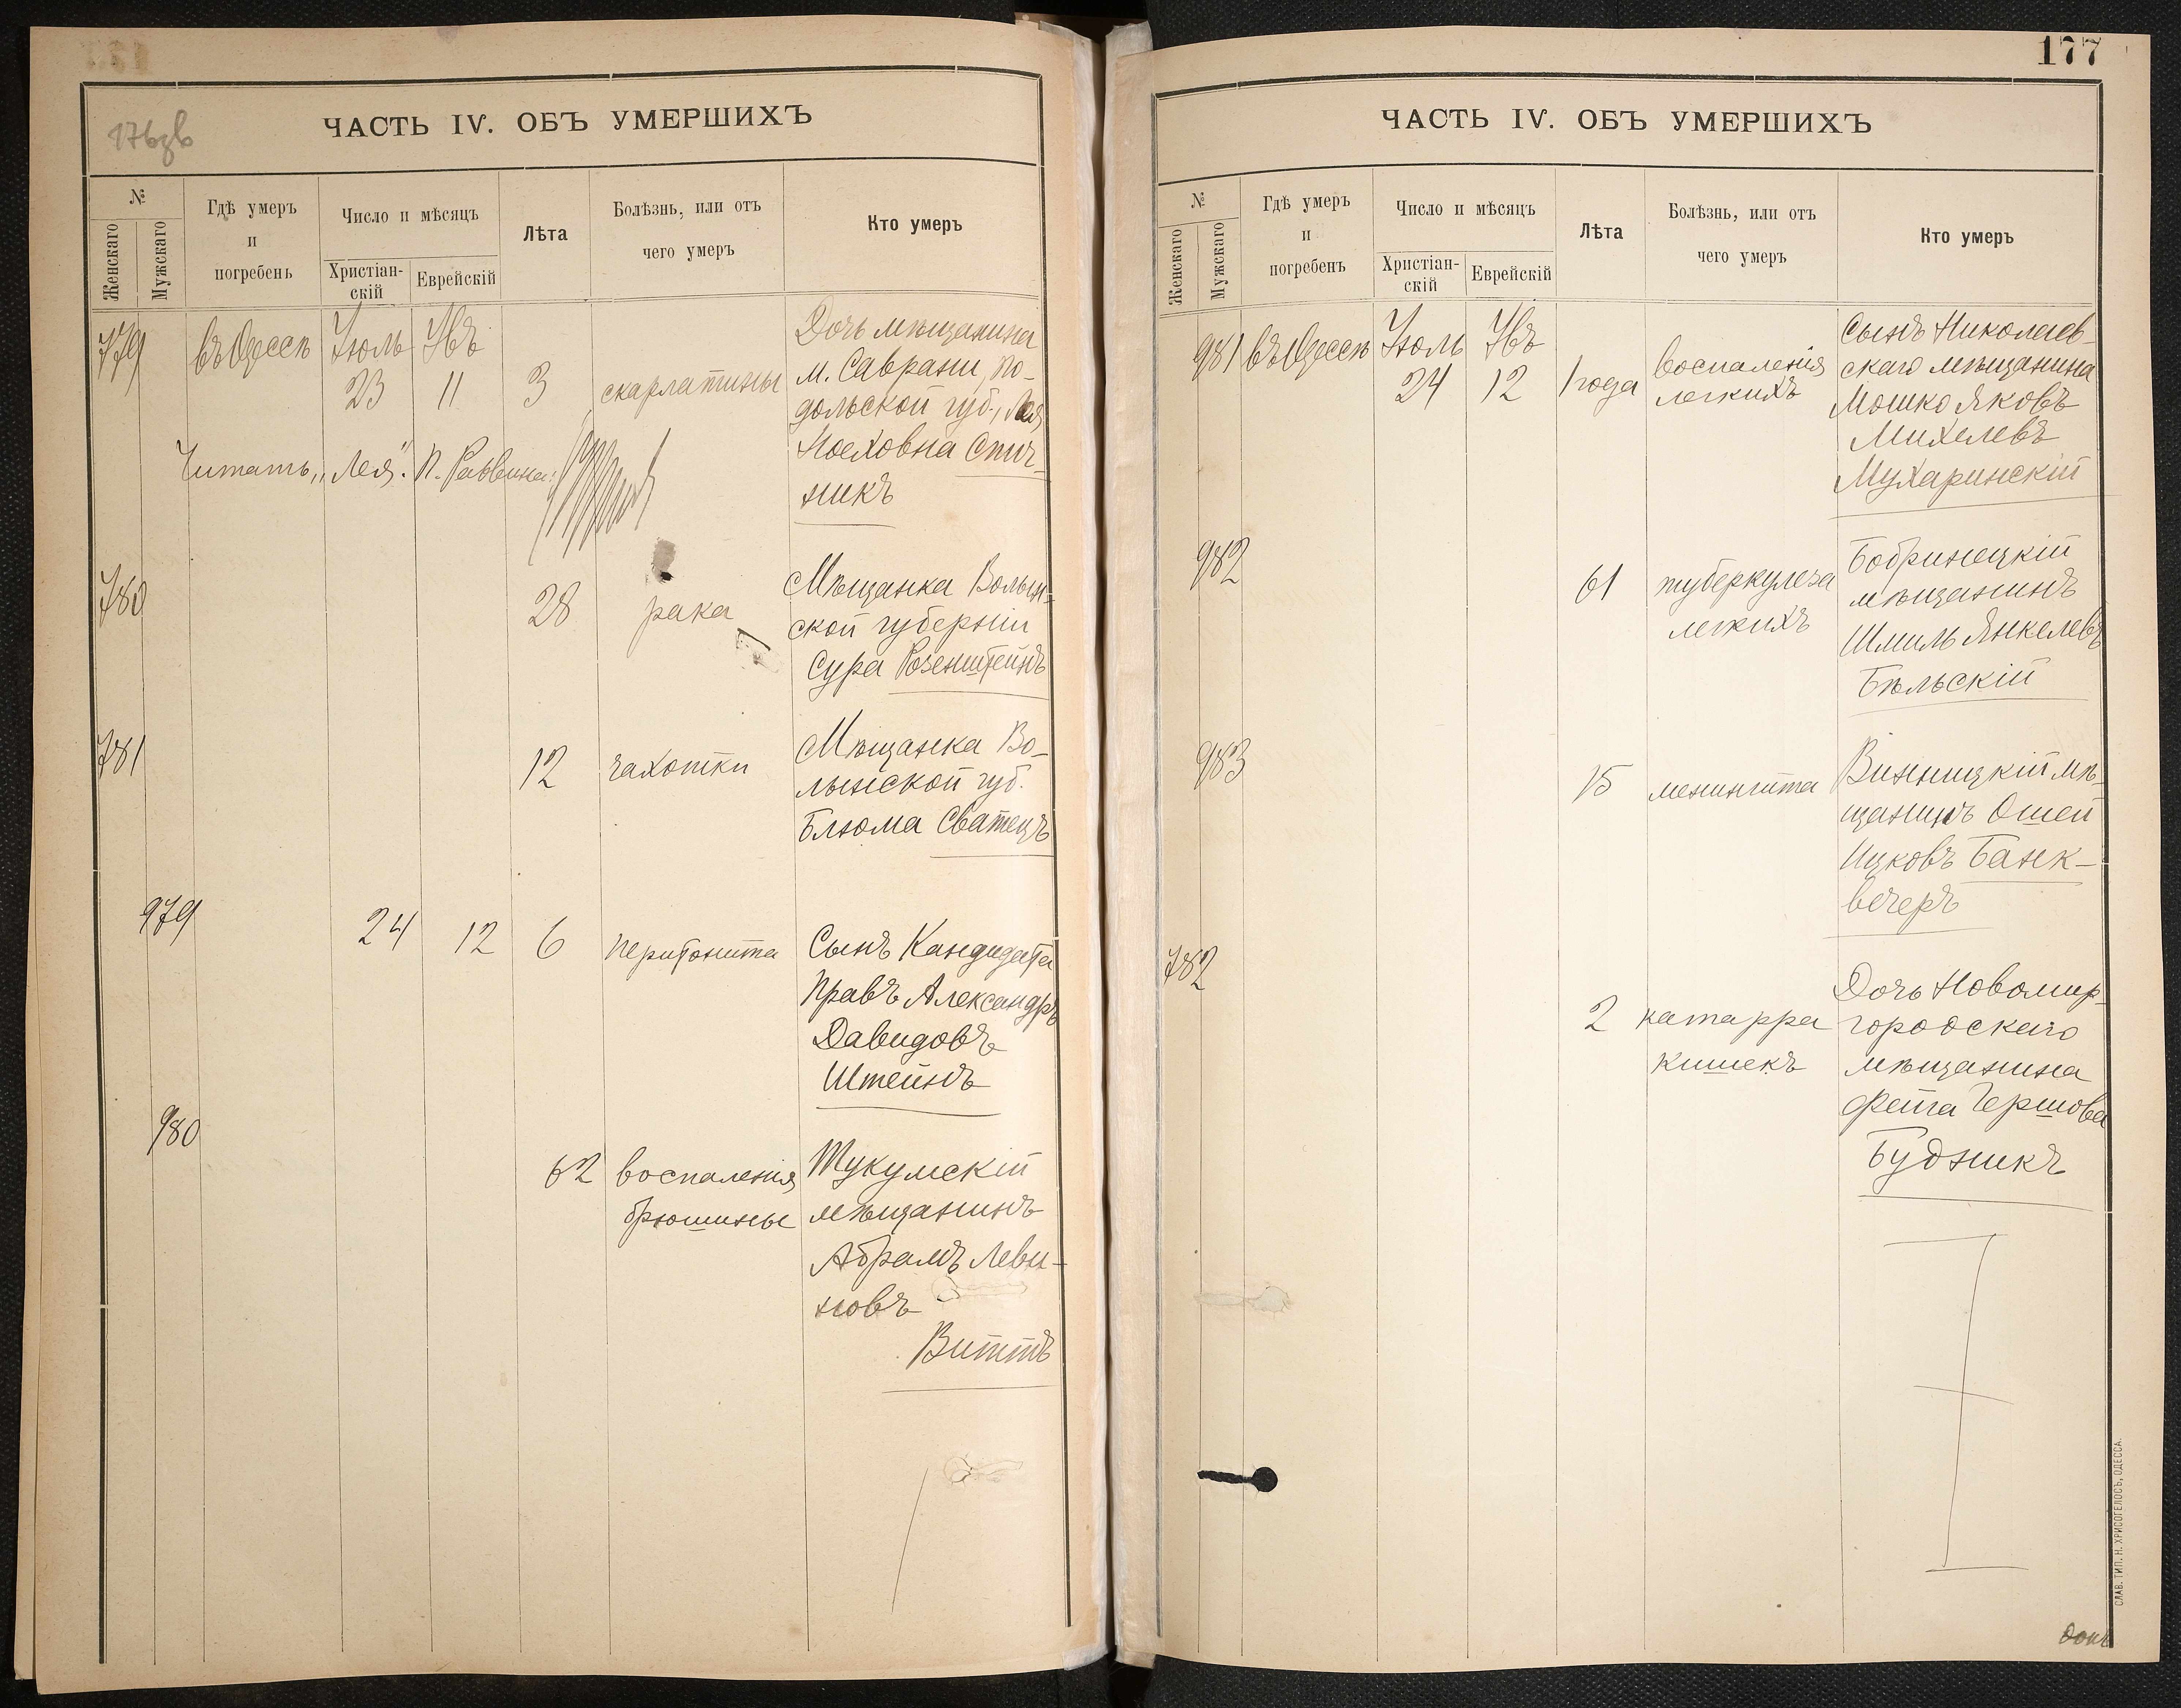 176зв
ЧАСТЬ IV. ОБЪ УМЕРШИХЪ
№
Женскаго
Мужскаго
Гдѣ умеръ
и
погребенъ
Число и мѣсяцъ
Христіан-
скій
Еврейскій
Лѣта
Болѣзнь, или отъ
чего умеръ
Кто умеръ
779 въ Одессѣ Іюль 23 Абъ 11 3 скарлатины
Дочь мѣщанина
м. Саврани, По-
дольской губ., Лея
Носховна Спич-
никъ
Читать „Лея“. П. Раввина:
780 28 рака
Мѣщанка Волын-
ской губерніи
Сура Розенштейнъ
781 12 чахотки
Мѣщанка Во-
лынской губ.
Блюма Сватецъ
979 24 12 6 перитонита
Сынъ Кандидата
Правъ Александръ
Давидовъ
Штейнъ
980 62 воспаленія
брюшины
Тукумскій
мѣщанинъ
Абрамъ Леви-
новъ
Виттъ
177
ЧАСТЬ IV. ОБЪ УМЕРШИХЪ
№
Женскаго
Мужскаго
Гдѣ умеръ
и
погребенъ
Число и мѣсяцъ
Христіан-
скій
Еврейскій
Лѣта
Болѣзнь, или отъ
чего умеръ
Кто умеръ
981 въ Одессѣ Іюль 24 Абъ 12 1 года воспаленія
легкихъ
Сынъ Николаев-
скаго мѣщанина
Мошко Яковъ
Михелевъ
Мухаринскій
982 61 туберкулеза
легкихъ
Бобринецкій
мѣщанинъ
Шмиль Янкелевъ
Бѣльскій
983 15 менингита
Винницкій мѣ-
щанинъ Ошей
Ицковъ Банк-
вечеръ
782 2 катарра
кишекъ
Дочь Новомир-
городскаго
мѣщанина
Фейга Гершова
Будникъ
СЛАВ. ТИП. Н. ХРИСОГЕЛОСЪ, ОДЕССА.